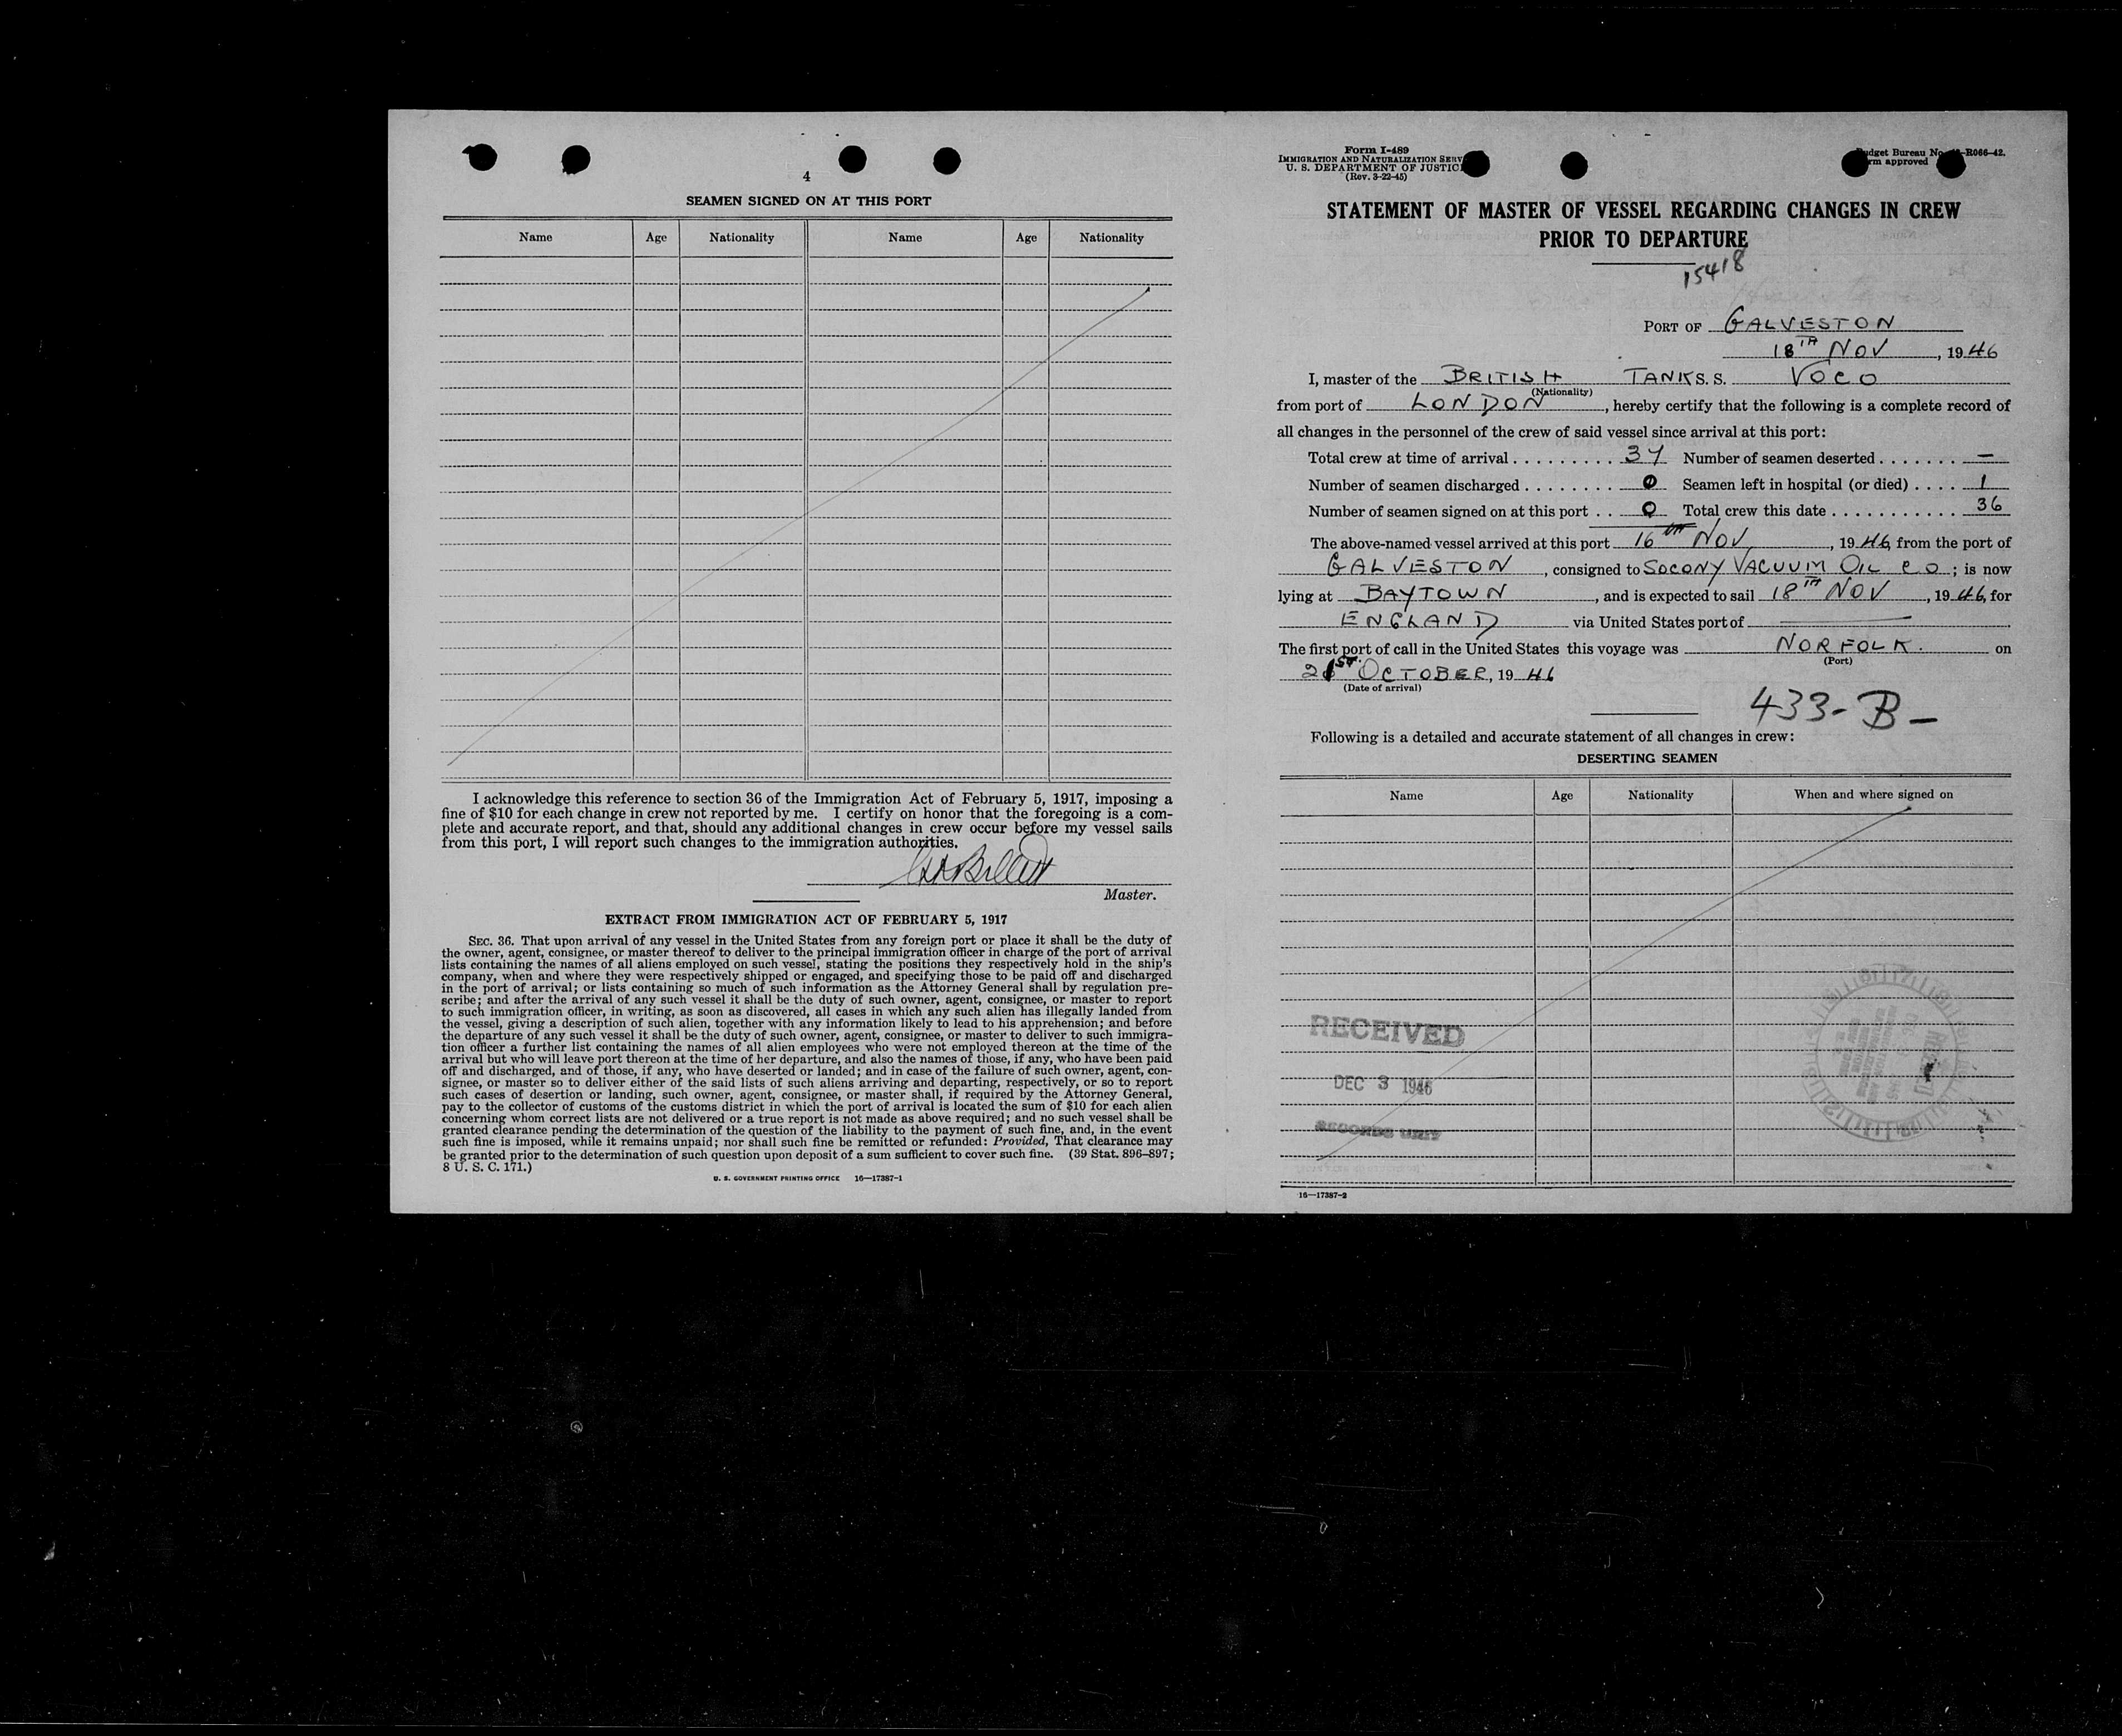 4
SEAMEN SIGNED ON AT THIS PORT
Name Age Nationality Name Age Nationality
I acknowledge this reference to section 36 of the Immigration Act of February 5, 1917, imposing a
fine of $10 for each change in crew not reported by me. I certify on honor that the foregoing is a com-
plete and accurate report, and that, should any additional changes in crew occur before my vessel sails
from this port, I will report such changes to the immigration authorities.
Master.
EXTRACT FROM IMMIGRATION ACT OF FEBRUARY 5, 1917
SEC. 36. That upon arrival of any vessel in the United States from any foreign port or place it shall be the duty of
the owner, agent, consignee, or master thereof to deliver to the principal immigration officer in charge of the port of arrival
lists containing the names of all aliens employed on such vessel, stating the positions they respectively hold in the ship's
company, when and where they were respectively shipped or engaged, and specifying those to be paid off and discharged
in the port of arrival; or lists containing so much of such information as the Attorney General shall by regulation pre-
scribe; and after the arrival of any such vessel it shall be the duty of such owner, agent, consignee, or master to report
to such immigration officer, in writing, as soon as discovered, all cases in which any such alien has illegally landed from
the vessel, giving a description of such alien, together with any information likely to lead to his apprehension; and before
the departure of any such vessel it shall be the duty of such owner, agent, consignee, or master to deliver to such immigra-
tion officer a further list containing the names of all alien employees who were not employed thereon at the time of the
arrival but who will leave port thereon at the time of her departure, and also the names of those, if any, who have been paid
off and discharged, and of those, if any, who have deserted or landed; and in case of the failure of such owner, agent, con-
signee, or master so to deliver either of the said lists of such aliens arriving and departing, respectively, or so to report
such cases of desertion or landing, such owner, agent, consignee, or master shall, if required by the Attorney General,
pay to the collector of customs of the customs district in which the port of arrival is located the sum of $10 for each alien
concerning whom correct lists are not delivered or a true report is not made as above required; and no such vessel shall be
granted clearance pending the determination of the question of the liability to the payment of such fine, and, in the event
such fine is imposed, while it remains unpaid; nor shall such fine be remitted or refunded: Provided, That clearance may
be granted prior to the determination of such question upon deposit of a sum sufficient to cover such fine. (39 Stat. 896–897;
8 U. S. C. 171.)
U. S. GOVERNMENT PRINTING OFFICE 16—17387-1
Form I-489
IMMIGRATION AND NATURALIZATION SERV
U. S. DEPARTMENT OF JUSTIC
(Rev. 3-22-45)
Budget Bureau No. -R066-42.
approved
STATEMENT OF MASTER OF VESSEL REGARDING CHANGES IN CREW
PRIOR TO DEPARTURE
15418
PORT OF GALVESTON
18TH NOV, 1946
I, master of the BRITISH TANK S. S. VOCO
(Nationality)
from port of LONDON, hereby certify that the following is a complete record of
all changes in the personnel of the crew of said vessel since arrival at this port:
Total crew at time of arrival . . . . . . . . . 37 Number of seamen deserted . . . . . . . —
Number of seamen discharged . . . . . . . . 0 Seamen left in hospital (or died) . . . . 1
Number of seamen signed on at this port . . 0 Total crew this date . . . . . . . . . . . 36
The above-named vessel arrived at this port 16TH NOV, 1946, from the port of
GALVESTON, consigned to SOCONY VACUUM OIL CO; is now
lying at BAYTOWN, and is expected to sail 18TH NOV, 1946, for
ENGLAND via United States port of —
The first port of call in the United States this voyage was NORFOLK. on
(Port)
21ST OCTOBER, 1946
(Date of arrival)
433-B-
Following is a detailed and accurate statement of all changes in crew:
DESERTING SEAMEN
Name Age Nationality When and where signed on
RECEIVED
DEC 3 1946
RECORDS UNIT
16—17387-2